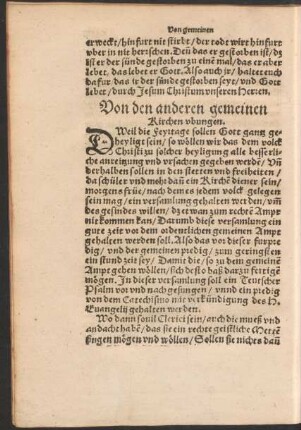 Von gemeinen
erweckt/hinfurt nit stirbt/der todt wirt hinfurt
vber in nit herrschen. Deñ das er gestorben ist/dz
ist er der sünde gestorben zu eine mal/das er aber
lebet/das lebet er Gott. Also auch ir/haltet euch
dafur/das ir der sünde gestorben seyt/vnd Gott
lebet/durch Jesum Christum vnseren Herren.
Von den anderen gemeinen
Kirchen vbungen.
DWeil die Feyrtage sollen Gott gantz ge-
heyligt sein/so wöllen wir das dem volck
Christi zu solcher heyligung alle besserli-
che anreitzung vnd vrsachen gegeben werde/Vñ
derhalben sollen in den stetten vnd freiheiten/
da schüler vnd mehr dañ ein Kirchẽ diener sein/
morgens früe/nach dem es jedem volck gelegen
sein mag/ein versamlung gehalten werden/vm̃
des gesindes willen/dzet wan zum rechtẽ Ampt
nit kommen kan/Darumb diese versamlung ein
gute zeit vor dem ordenlichen gemeinen Ampt
gehalten werden soll. Also das vor dieser furpre
dig/vnd der gemeinen predig/zum geringsten
ein stund zeit sey/Damit die/so zu dem gemeinẽ
Ampt gehen wöllen/sich desto baß darzu fertigẽ
mögen. In dieser versamlung soll ein Teutscher
Psalm vor vnd nachgesungen/vnnd ein predig
von dem Catechismo mit verkündigung des H.
Euangelij gehalten werden.
Wo dann souil Clerici sein/auch die mueß vnd
andacht habẽ/das sie ein rechte geistliche Metẽ
singen mögen vnd wöllen/Sollen sie nichts dañ